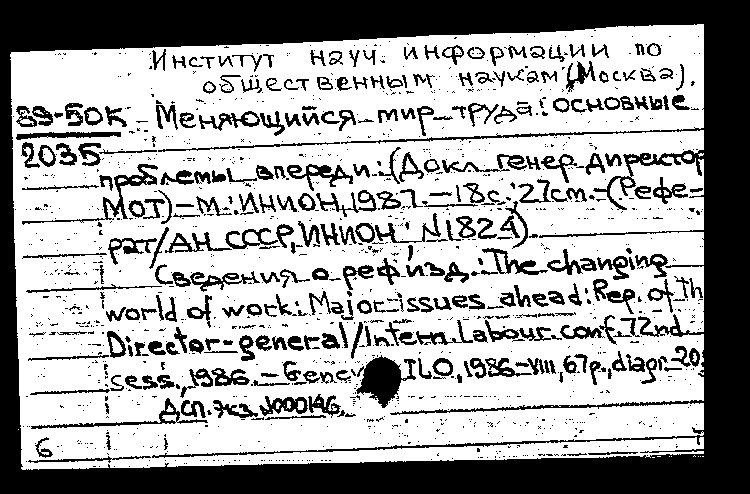 Институт науч. информации по
общественным наукам (Москва).
89-50К Меняющийся мир труда: основные
2035
проблемы впереди: (Докл. генер. директор
МОТ) - М.: ИНИОН, 1987. - 18с.; 27cm. - (Рефе-
рат/АН СССР, ИНИОН; N1824).
Сведения о реф. изд.: The changing
world of work: Major issues ahead: Rep. of th
Director-general/Intern. Labour. conf. 72nd
sess., 1986. - Genev ILO, 1986. - VIII, 67p., diagr. 20
Дсп. экз. N000146.
6